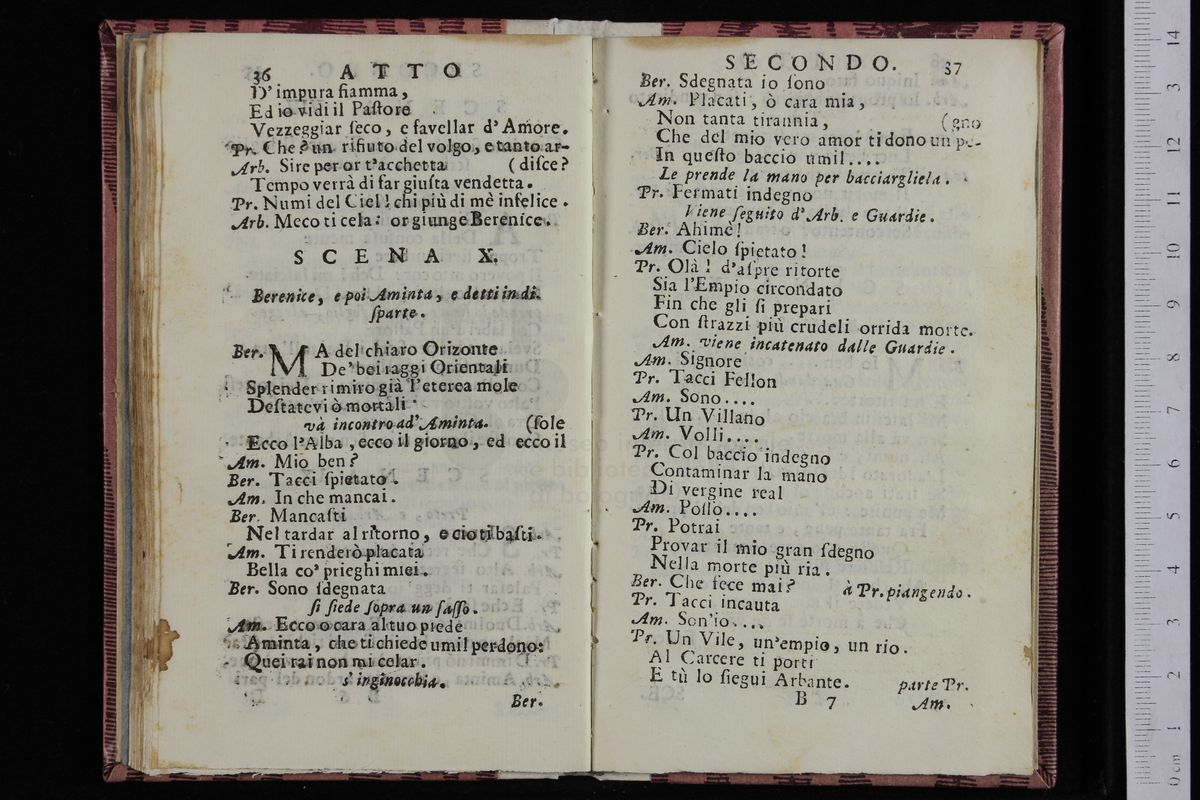 36 ATTO
D' impura fiamma,
Ed io vidi il Paſtore
Vezzeggiar ſeco, e favellar d'Amore.
Pr. Che? un rifiuto del volgo, e tanto ar-
Arb. Sire per or t'acchetta (diſce?
Tempo verrà di far giuſta vendetta.
Pr. Numi del Ciel! chi più di mè infelice.
Arb. Meco ti cela: or giunge Berenice.
SCENA X.
Berenice, e poi Aminta, e detti in di-
ſparte.
Ber. MA del chiaro Orizonte
De' bei raggi Orientali
Splender rimiro già l'eterea mole
Deſtatevi ò mortali
và incontro ad' Aminta. (ſole
Ecco l'Alba, ecco il giorno, ed ecco il
Am. Mio ben?
Ber. Tacci ſpietato.
Am. In che mancai.
Ber. Mancaſti
Nel tardar al ritorno, e cio ti baſti.
Am. Ti renderò placata
Bella co' prieghi miei.
Ber. Sono ſdegnata
ſi ſiede ſopra un ſaſſo.
Am. Ecco o cara al tuo piede
Aminta, che ti chiede umil perdono:
Quei rai non mi celar.
s' inginocchia.
Ber.
SECONDO. 37
Ber. Sdegnata io ſono
Am. Placati, ò cara mia,
Non tanta tirannia, (gno
Che del mio vero amor ti dono un pe-
In queſto baccio umil....
Le prende la mano per bacciargliela.
Pr. Fermati indegno
Viene ſeguito d'Arb. e Guardie.
Ber. Ahimè!
Am. Cielo ſpietato!
Pr. Olà! d'aſpre ritorte
Sia l'Empio circondato
Fin che gli ſi prepari
Con ſtrazzi più crudeli orrida morte.
Am. viene incatenato dalle Guardie.
Am. Signore
Pr. Tacci Fellon
Am. Sono....
Pr. Un Villano
Am. Volli....
Pr. Col baccio indegno
Contaminar la mano
Di vergine real
Am. Poſſo....
Pr. Potrai
Provar il mio gran ſdegno
Nella morte più ria.
Ber. Che fece mai? à Pr. piangendo.
Pr. Tacci incauta
Am. Son'io....
Pr. Un Vile, un'empio, un rio.
Al Carcere ti porti
E tù lo ſiegui Arbante. parte Pr.
B 7 Am.
0 cm 1 2 3 4 5 6 7 8 9 10 11 12 13 14